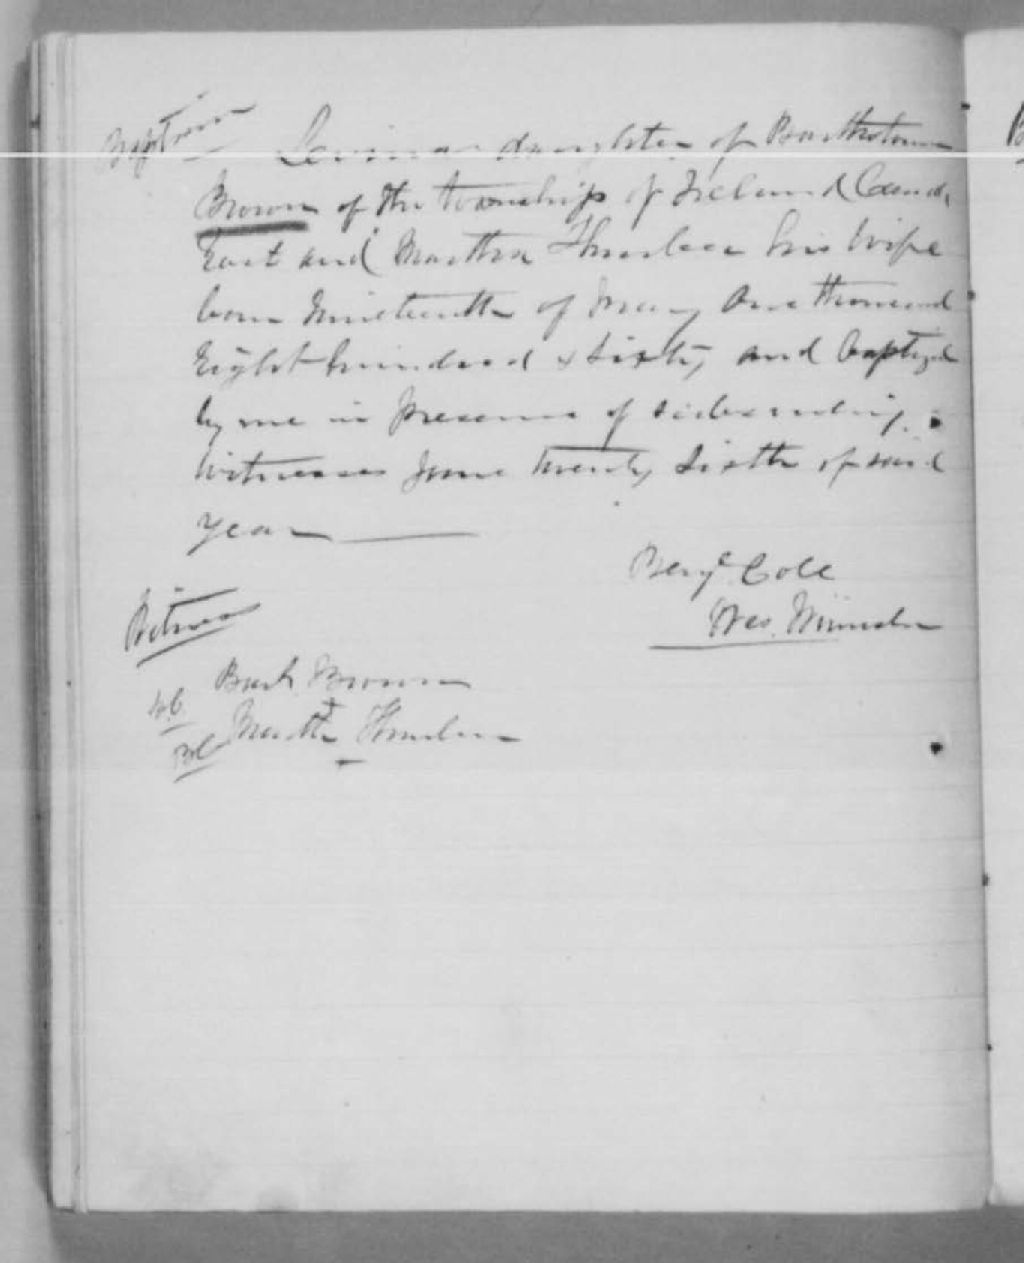 Baptism
Lovina daughter of Bartholomew
Brown of the township of Ireland Canada
East and Martha Thurber his Wife
born Nineteenth of May One thousand
Eight hundred & Sixty and baptized
by me in presence of subscribing
Witnesses June twenty Sixth of said
year
Benj. Cole
Wes. Minister
Witness
Bart. Brown
Martha Thurber
B